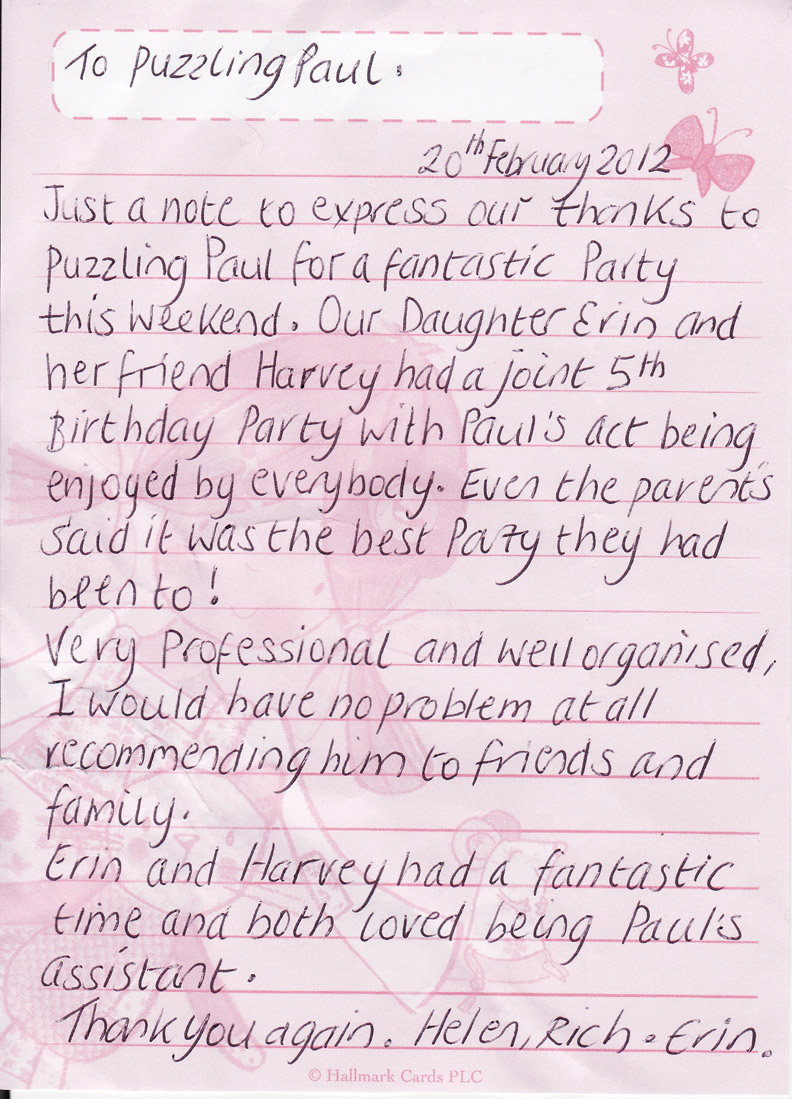 To Puzzling Paul.
20th February 2012
Just a note to express our thanks to
Puzzling Paul for a fantastic Party
this weekend. Our Daughter Erin and
her friend Harvey had a joint 5th
Birthday Party with Paul's act being
enjoyed by everybody. Even the parent's
said it was the best Party they had
been to!
Very Professional and well organised,
I would have no problem at all
recommending him to friends and
family.
Erin and Harvey had a fantastic
time and both loved being Paul's
assistant.
Thank you again. Helen, Rich . Erin.
© Hallmark Cards PLC